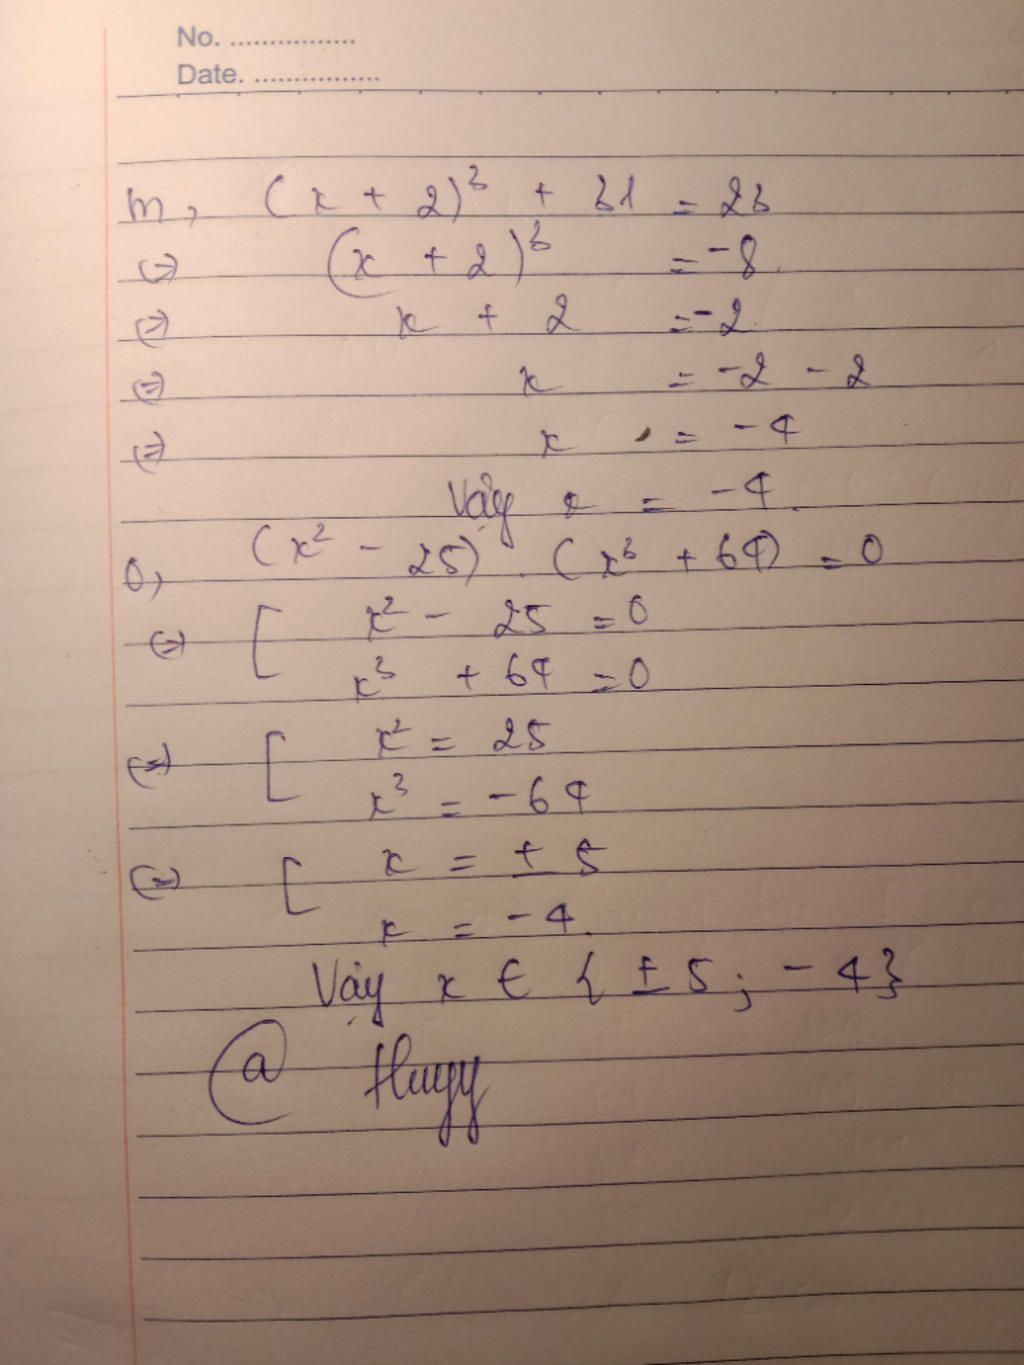 No. ................
Date. ................
m, (x + 2)³ + 31 = 23
(=) (x + 2)³ = -8.
(=) x + 2 = -2.
(=) x = -2 - 2
(=) x = -4
Vậy x = -4.
o, (x² - 25) . (x³ + 64) = 0
(=) [ x² - 25 = 0
x³ + 64 = 0
(=) [ x² = 25
x³ = -64
(=) [ x = ± 5
x = -4.
Vậy x ∈ { ± 5 ; - 4 }
@ Huyy